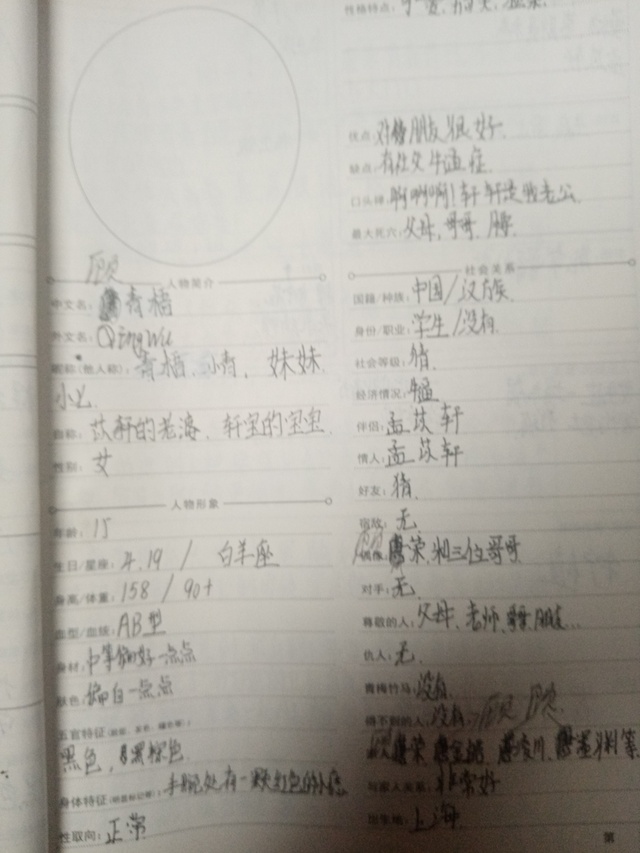 性格特点：
优点：对待朋友很好.
缺点：有社交牛逼症.
口头禅：啊啊啊！轩轩是我老公.
最大死穴：父母,哥哥、腰
顾
人物简介
中文名：青梧
外文名：QingWu
昵称(他人称)：青梧、小青、妹妹.
小七
自称：苡轩的老婆、轩宝的宝宝
性别：女
人物形象
年龄：15
生日/星座：4.19 / 白羊座
身高/体重：158 / 90+
血型/血统：AB型
身材：中等偏好一点点
肤色：偏白一点点
五官特征
黑色，黑棕色.
身体特征：手腕处有一颗红色的小痣
性取向：正常
社会关系
国籍/种族：中国/汉族.
身份/职业：学生/没有.
社会等级：猜.
经济情况：
伴侣：孟苡轩
情人：孟苡轩
好友：猜.
宿敌：无.
偶像：顾荣.和三位哥哥
对手：无.
尊敬的人：父母、老师、朋友...
仇人：无.
青梅竹马：没有.
得不到的人：没有.
顾 顾
荣 川、等.
与家人关系：非常好
出生地：上海
第